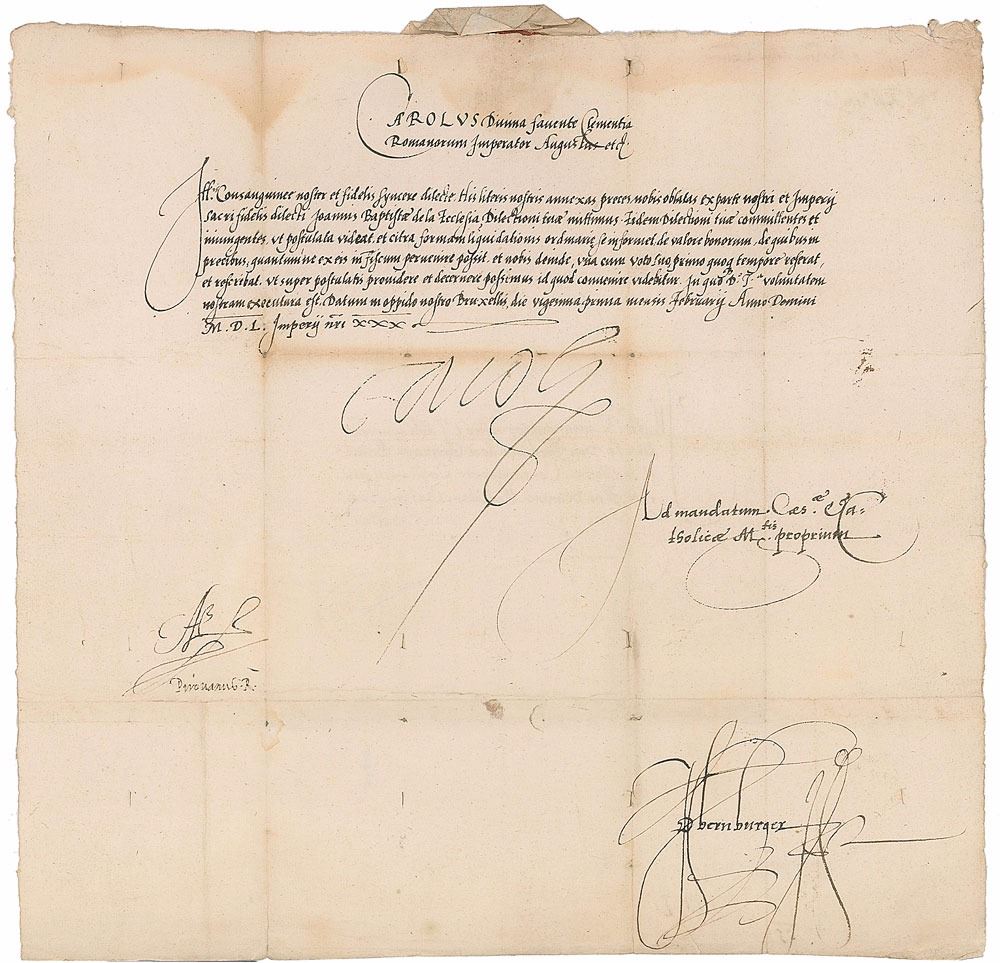 CAROLVS Diuina fauente Clementia
Romanorum Imperator Augustus etc.
Ill. Consanguinee noster et fidelis syncere dilecte. His literis nostris annexas preces nobis oblatas ex parte nostri et Imperij
sacri fidelis dilecti Joannis Baptistæ de la Ecclesia Dilectioni tuæ mittimus. Eidem Dilectioni tuæ committentes et
iniungentes, vt postulata videat, et citra formam liquidationis ordinariæ se informet de valore bonorum, de quibus in
precibus, quantumue ex eis in fiscum peruenire possit. et nobis deinde, vna cum voto suo, primo quoq tempore referat,
et rescribat, vt super postulatis prouidere et decernere possimus id quod conuenire videbitur. In quo D. T. voluntatem
nostram executura est. Datum in oppido nostro Bruxellis, die vigesima prima mensis Februarij Anno Domini
M. D. L. Imperij nri xxx
Carol
Ad mandatum Cæs.æ & Ca-
tholicæ M.tis proprium
Obernburger